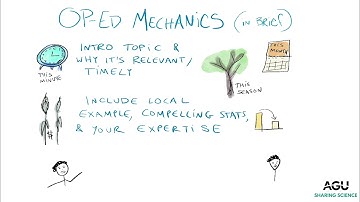 OP-ED MECHANICS (IN BRIEF)
INTRO TOPIC &
WHY IT'S RELEVANT/
TIMELY
THIS
MINUTE
THIS
SEASON
THIS
MONTH
INCLUDE LOCAL
EXAMPLE, COMPELLING STATS,
& YOUR EXPERTISE
AGU
SHARING SCIENCE